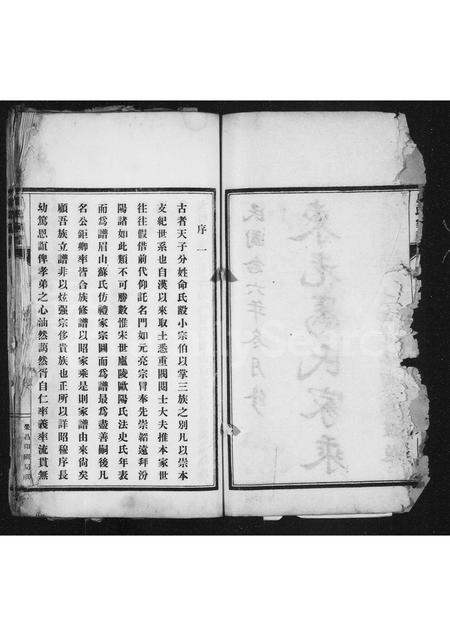 序一
古者天子分姓命氏設小宗伯以掌三族之别凡以崇本
支紀世系也自漢以來取士悉重閥閱士大夫推本家世
往往假借前代仰託名門如元亮宗冒奉先崇紹遠拜汾
陽諸如此類不可勝數惟宋世廬陵歐陽氏法史氏年表
而爲譜眉山蘇氏仿禮家宗圖而爲譜最爲盡善嗣後凡
名公鉅卿率皆合族修譜以昭家乘是則家譜由來尙矣
顧吾族立譜非以炫强宗侈貴族也正所以詳昭穆序長
幼篤恩誼俾孝弟之心油然藹然宵自仁率義率流貫無
榮昌印刷局印
東光馬氏家乘
民國念六年念月修